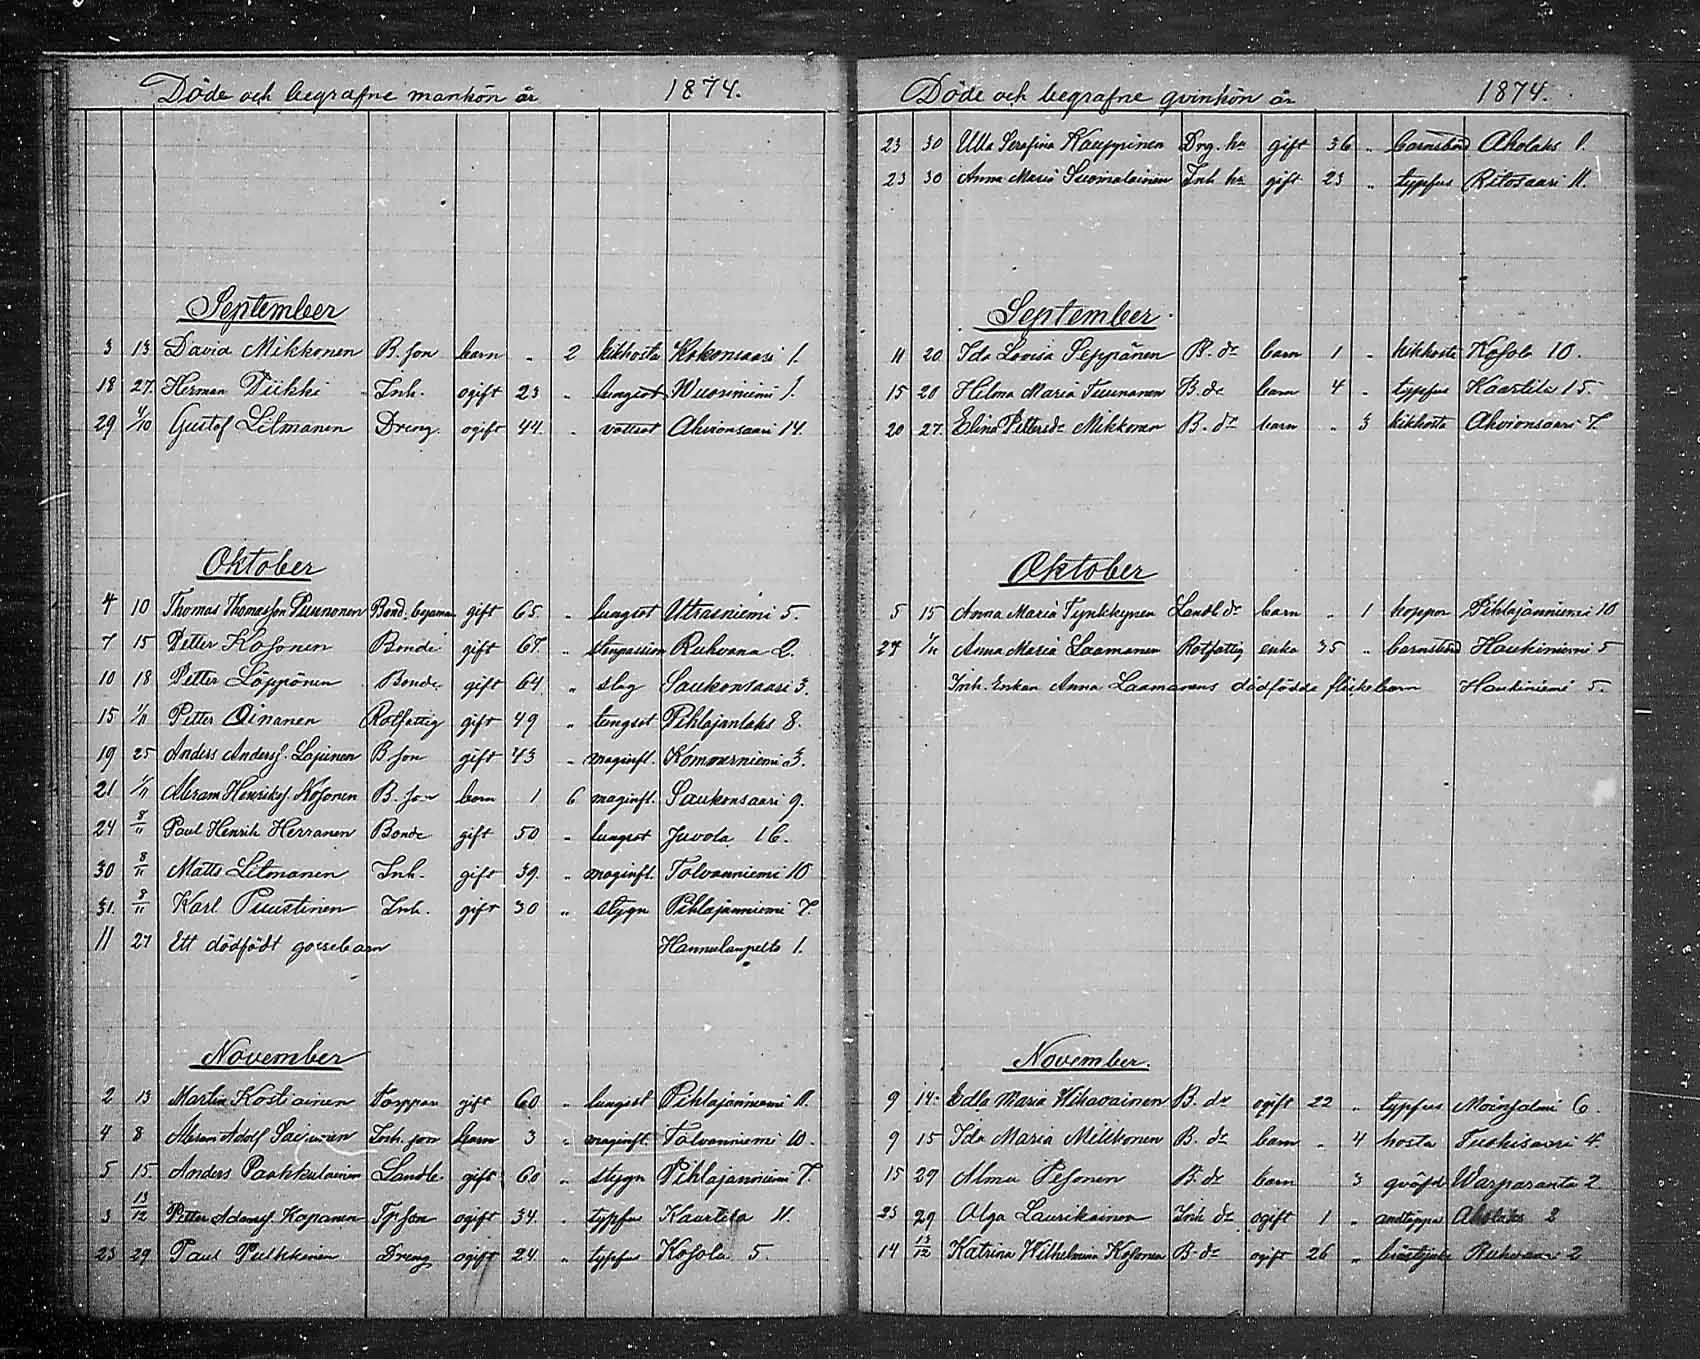 Döde och begrafne mankön år 1874.
September
3 13 David Mikkonen B. son barn „ 2 kikhosta Kokonsaari 1.
18 27. Herman Pukki Inh. ogift 23 „ lungsot Wuoriniemi 1.
29 4/10 Gustof Litmanen Dreng. ogift 44. „ vattsot Ahvionsaari 14.
Oktober
4 10 Thomas Thomasson Puunonen Bond. gift 65. „ lungsot Utrasniemi 5.
7 15 Petter Kosonen Bonde gift 67. „ Ruhvana 2.
10 18 Petter Löppönen Bonde gift 64 „ slag Saukonsaari 3.
15 1/11 Petter Oinanen Rotfattig gift 49 „ lungsot Pihlajanlaks 8.
19 25 Anders Andersf. Lajunen B son gift 43 „ maginfl. Kommerniemi 3.
21 1/11 Abram Henriksf. Kosonen B. son barn 1 6 maginfl. Saukonsaari 9.
24 8/11 Paul Henrik Herranen Bonde gift 50 „ lungsot Juvola 16.
30 8/11 Matts Litmanen Inh. gift 39. „ maginfl. Tolvanniemi 10
31. 8/11 Karl Puustinen Inh. gift 30 „ stygn Pihlajanniemi 7.
11 27 Ett dödfödt gossebarn Hannulanpelto 1.
November
2 13 Martin Kostiainen Torppare gift 60 „ lungsot Pihlajanniemi 11.
4 8 Abram Adolf Inh. son barn 3 „ maginfl. Tolvanniemi 10.
5 15. Anders Paahkulainen Landb. gift 60 „ stygn Pihlajanniemi 7.
3 13/12 Petter Adamsf. Kopanen Tpson ogift 34. „ typfus Kaartila 11.
23 29 Paul Pulkkinen Dreng ogift 24. „ typfus Kosola 5.
Döde och begrafne qvinkön år 1874.
23 30 Ulla Serafina Kauppinen Drg. hu gift 36 „ barnsbörd Aholaks 1.
23 30 Anna Maria Suomalainen Inh. hu gift 23 „ typfus Ritosaari 11.
September
11 20 Ida Lovisa Seppänen B. dr barn 1 „ kikhosta Kosola 10.
15 20 Hilma Maria Tuunanen B. dr barn 4 „ typfus Kaartila 15.
20 27. Elina Pettersdr Mikkonen B. dr barn „ 3 kikhosta Ahvionsaari 7.
Oktober
5 15 Anna Maria Tynkkynen Landb. dr barn „ 1 koppor Pihlajanniemi 10
27 1/11 Anna Maria Laamanen Rotfattig enka 35 „ barnsbörd Haukiniemi 5
Inh. Enkan Anna Laamanens dödfödde flickebarn Haukiniemi 5.
November.
9 14. Edla Maria Vihavainen B. dr ogift 22 „ typfus Moinsalmi 6.
9 15 Ida Maria Mikkonen B. dr barn „ 4 hosta Tuohisaari 4.
15 29 Alma Pesonen B. dr barn 3 qväfd Warparanta 2
23 29 Olga Laurikainen Inh dr ogift 1 „ andtäppa Aholaks 2
14 13/12 Katrina Wilhelmina Kosonen B. dr ogift 26 „ bröstsjuka Ruhvana 2